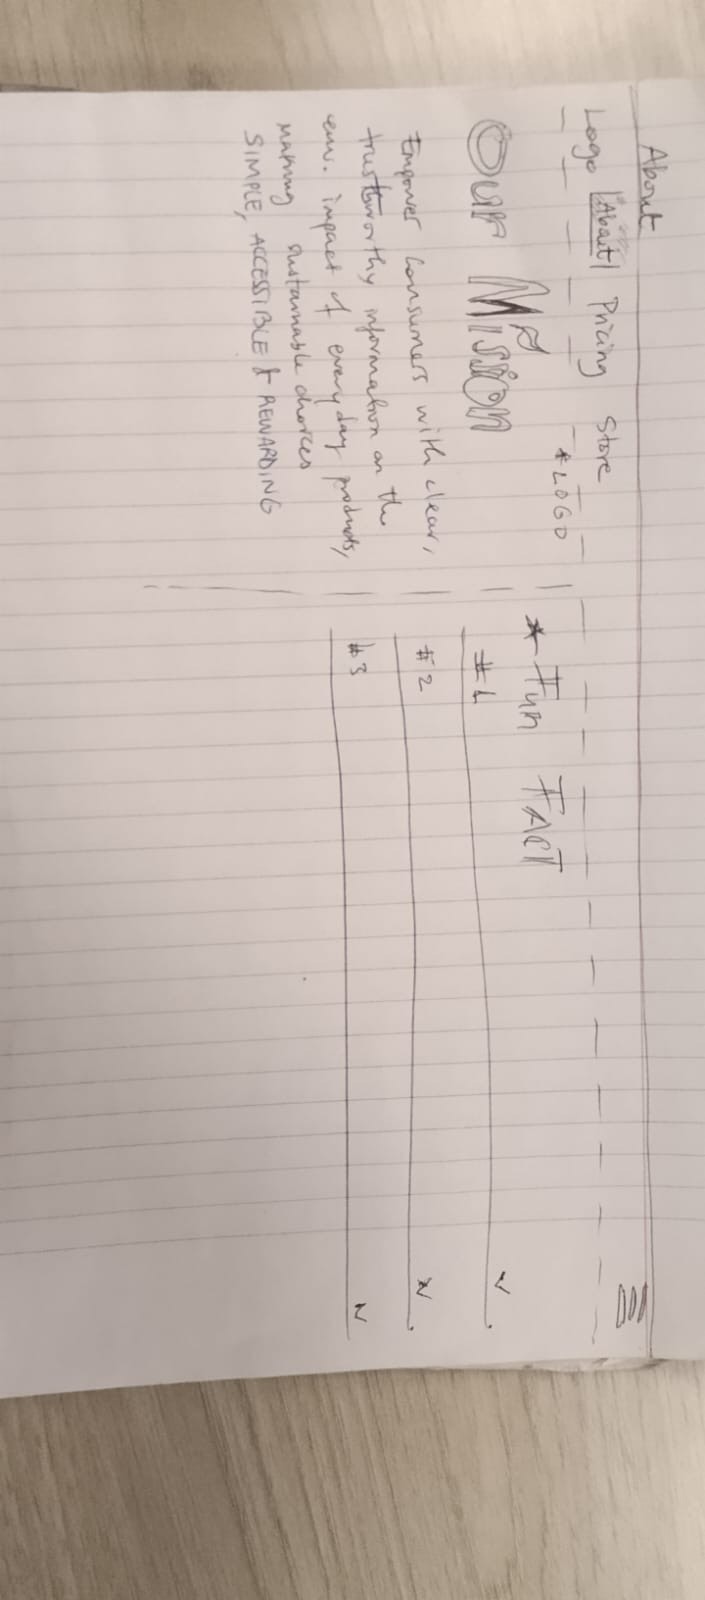 About
Logo About Pricing Store
*LOGO
Our Mission
Empower consumers with clear,
trustworthy information on the
env. impact of everyday products,
making sustainable choices
SIMPLE, ACCESSIBLE & REWARDING
* Fun FACT
#1
#2
#3